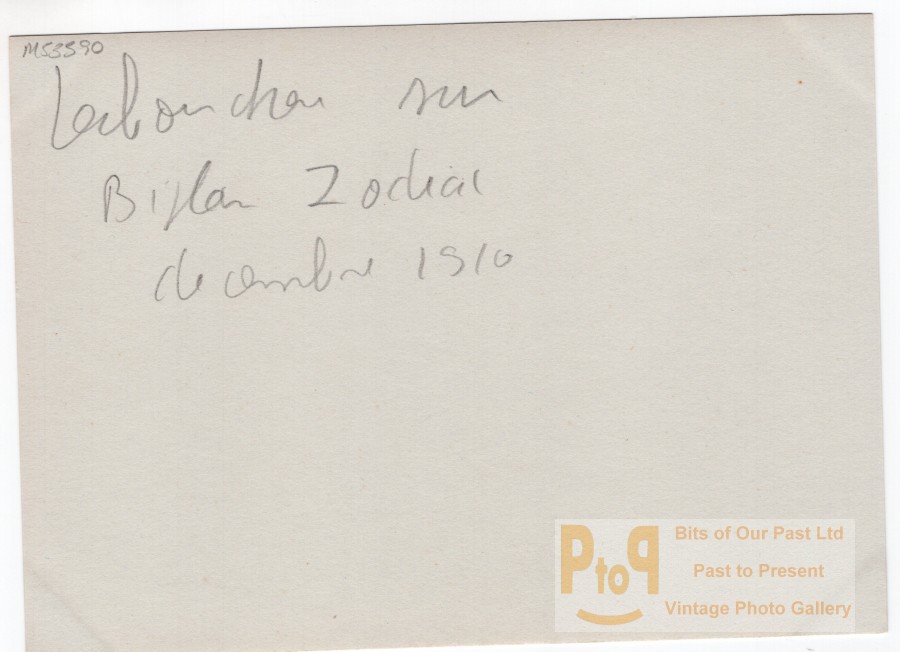 M53590
Labouchere sur
Biplan Zodiac
decembre 1910
PtoP
Bits of Our Past Ltd
Past to Present
Vintage Photo Gallery